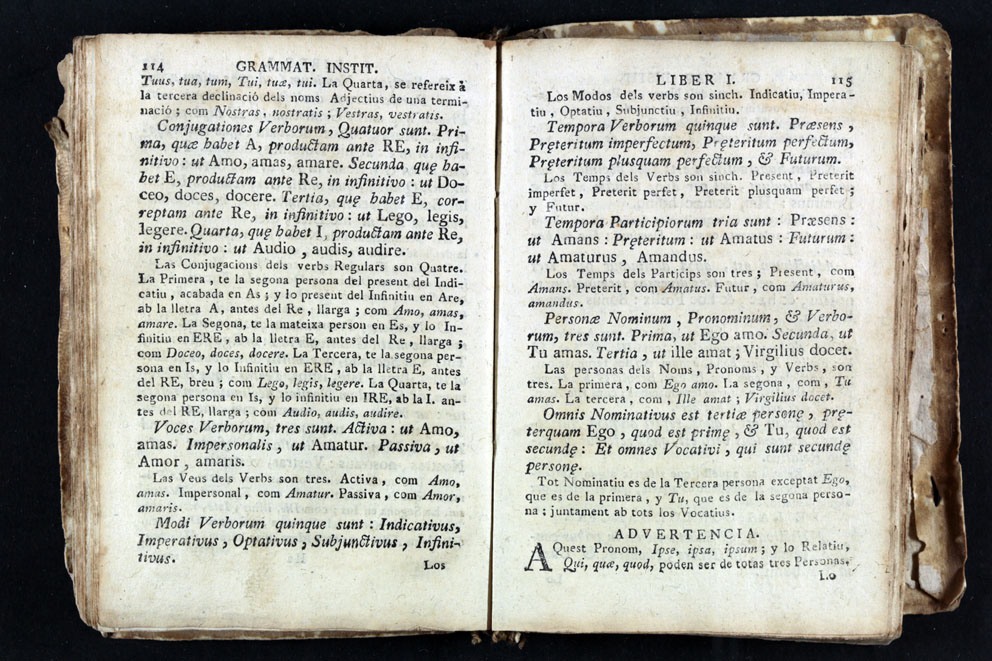 114 GRAMMAT. INSTIT.
Tuus, tua, tum, Tui, tuæ, tui. La Quarta, se refereix à
la tercera declinació dels noms Adjectius de una termi-
nació ; com Nostras, nostratis ; Vestras, vestratis.
Conjugationes Verborum, Quatuor sunt. Pri-
ma, quæ habet A, productam ante RE, in infi-
nitivo : ut Amo, amas, amare. Secunda quę ha-
bet E, productam ante Re, in infinitivo : ut Do-
ceo, doces, docere. Tertia, quę habet E, cor-
reptam ante Re, in infinitivo : ut Lego, legis,
legere. Quarta, quę habet I, productam ante Re,
in infinitivo : ut Audio , audis, audire.
Las Conjugacions dels verbs Regulars son Quatre.
La Primera , te la segona persona del present del Indi-
catiu , acabada en As ; y lo present del Infinitiu en Are,
ab la lletra A, antes del Re , llarga ; com Amo, amas,
amare. La Segona, te la mateixa person en Es, y lo In-
finitiu en ERE , ab la lletra E, antes del Re , llarga ;
com Doceo, doces, docere. La Tercera, te la segona per-
sona en Is, y lo Infinitiu en ERE , ab la lletra E, antes
del RE, breu ; com Lego, legis, legere. La Quarta, te la
segona persona en Is, y lo infinitiu en IRE, ab la I. an-
tes del RE, llarga ; com Audio, audis, audire.
Voces Verborum, tres sunt. Activa : ut Amo,
amas. Impersonalis , ut Amatur. Passiva , ut
Amor , amaris.
Las Veus dels Verbs son tres. Activa , com Amo,
amas. Impersonal , com Amatur. Passiva , com Amor,
amaris.
Modi Verborum quinque sunt : Indicativus,
Imperativus , Optativus , Subjunctivus , Infini-
tivus.
Los
LIBER I. 115
Los Modos dels verbs son sinch. Indicatiu, Impera-
tiu , Optatiu , Subjunctiu , Infinitiu.
Tempora Verborum quinque sunt. Præsens ,
Pręteritum imperfectum, Pręteritum perfectum,
Pręteritum plusquam perfectum , & Futurum.
Los Temps dels Verbs son sinch. Present , Preterit
imperfet , Preterit perfet , Preterit plusquam perfet ;
y Futur.
Tempora Participiorum tria sunt : Præsens :
ut Amans : Pręteritum : ut Amatus : Futurum :
ut Amaturus , Amandus.
Los Temps dels Particips son tres ; Present , com
Amans. Preterit , com Amatus. Futur , com Amaturus,
amandus.
Personæ Nominum , Pronominum, & Verbo-
rum, tres sunt. Prima, ut Ego amo. Secunda, ut
Tu amas. Tertia , ut ille amat ; Virgilius docet.
Las personas dels Noms , Pronoms , y Verbs , son
tres. La primera , com Ego amo. La segona , com , Tu
amas. La tercera , com , Ille amat ; Virgilius docet.
Omnis Nominativus est tertiæ personę , prę-
terquam Ego , quod est primę , & Tu, quod est
secundę : Et omnes Vocativi , qui sunt secundę
personę.
Tot Nominatiu es de la Tercera persona exceptat Ego,
que es de la primera , y Tu, que es de la segona perso-
na ; juntament ab tots los Vocatius.
ADVERTENCIA.
AQuest Pronom, Ipse, ipsa, ipsum ; y lo Relatiu,
Qui, quæ, quod, poden ser de totas tres Personas.
Lo